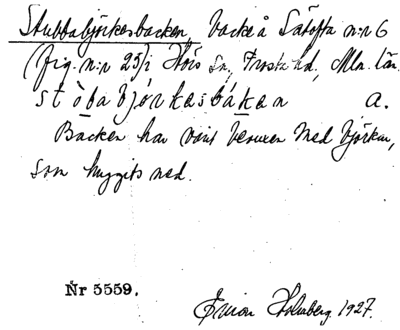 Stubbabjörkesbacken, backe å Sätofta n:r 6
(fig. n:r 23) i Hörs sn, Frosta hd, Mlm. län.
stòbabjórkəsbákən a.
Backen har varit bevuxen med björkar,
som huggits ned.
Nr 5559.
Holmberg 1927.